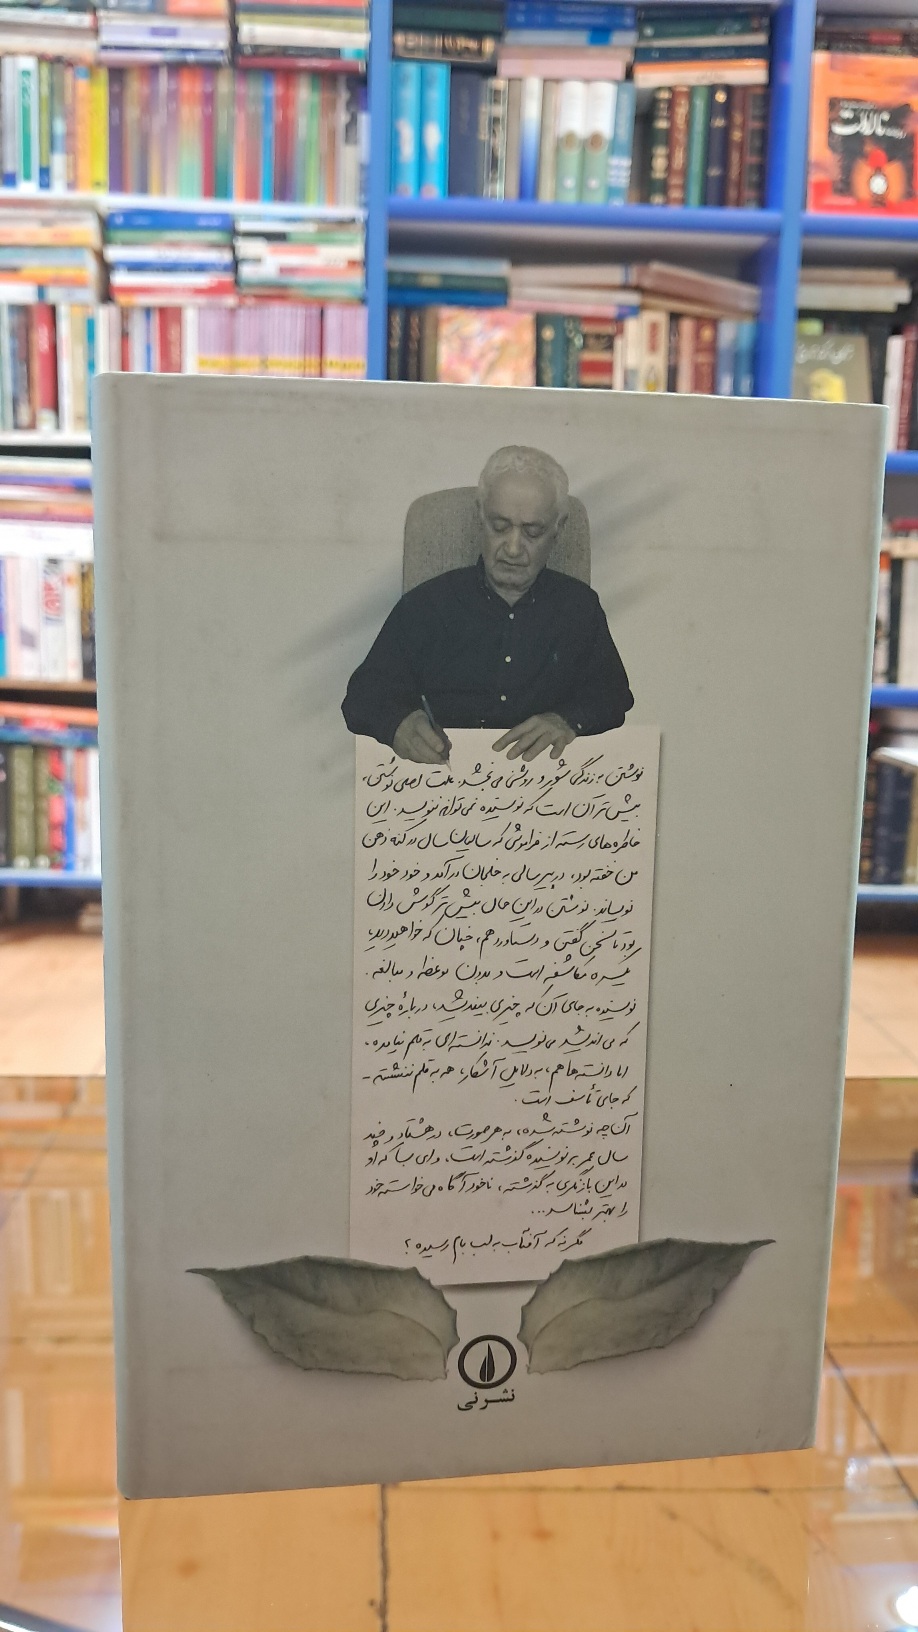 نوشتن به زندگی شور و روشنی می‌بخشد. علت اصلی نوشتن،
بیش‌تر آن است که نویسنده نمی‌تواند ننویسد. این
خاطره‌های رسته از فراموشی که سالیان سال در کنه ذهن
من خفته بود، در پیرسالی به خلجان درآمد و خود خود را
نویساند. نوشتن در این حال بیش‌تر گوش دادن
بود تا سخن گفتن و دستاوردهم، چنان که خواهید دید،
یکسره مکاشفه است و بدون موعظه و مبالغه.
نویسنده به جای آن که چیزی بیندیشد، دربارهٔ چیزی
که می‌اندیشد می‌نویسد. ندانسته‌ای به قلم نیامده،
اما دانسته‌ها هم، به دلایل آشکار، همه به قلم ننشسته -
که جای تأسف است.
آن‌چه نوشته شده، به هر صورت، در هشتاد و چند
سال عمر بر نویسنده گذشته است، و ای بسا که او
در این بازنگری به گذشته، ناخودآگاه می‌خواسته خود
را بهتر بشناسد...
مگر نه که آفتاب به لب بام رسیده؟
نشر نی